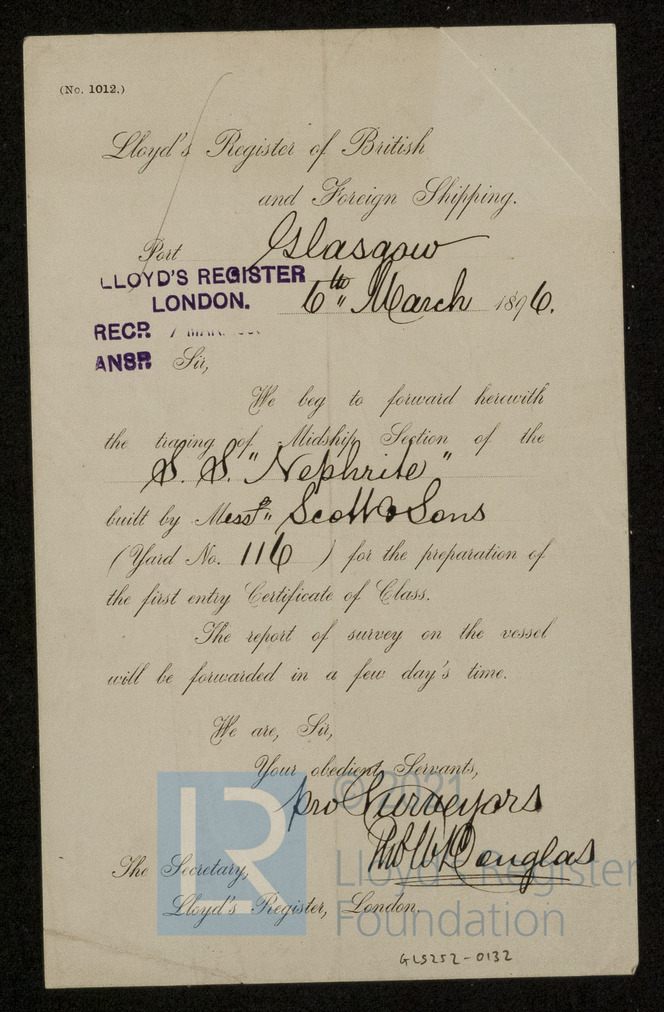 (No. 1012.)
Lloyd's Register of British
and Foreign Shipping.
Port Glasgow
LLOYD'S REGISTER
LONDON.
6th " March 1896.
RECD. 7 MAR.
ANSR
Sir,
We beg to forward herewith
the tracing of Midship Section of the
S. S. "Nephrite"
built by Messrs Scott & Sons
(Yard No. 116 ) for the preparation of
the first entry Certificate of Class.
The report of survey on the vessel
will be forwarded in a few day's time.
We are, Sir,
Your obedient Servants,
pro Surveyors
Douglas
The Secretary,
Lloyd's Register, London.
LR
© 2021
Lloyd's Register
Foundation
GLS252-0132